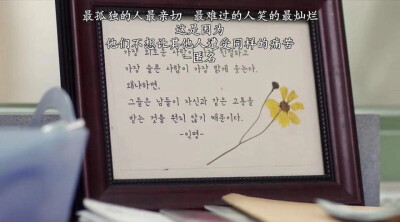 最孤独的人最亲切 最难过的人笑的最灿烂
这是因为
他们不想让其他人遭受同样的痛苦
- 匿名
가장 사람이
가장 슬픈 사람이 가장 밝게 웃는다.
왜냐하면,
그들은 남들이 자신과 같은 고통을
받는 것을 원치 않기 때문이다.
-익명-